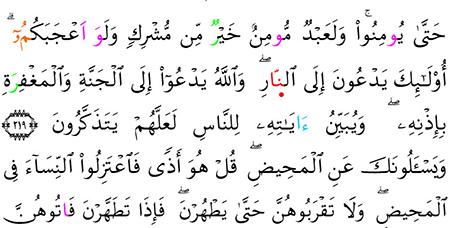 حَتَّىٰ يُومِنُواْۚ وَلَعَبْدٌ مُّومِنٌ خَيْرٌ مِّن مُّشْرِكٍ وَلَوَ اَعْجَبَكُمُۥٓۖ
أُوْلَٰٓئِكَ يَدْعُونَ إِلَى اَلنّ۪ارِۖ وَاللَّهُ يَدْعُوٓاْ إِلَى اَلْجَنَّةِ وَالْمَغْفِرَةِ
بِإِذْنِهِۦۖ وَيُبَيِّنُ ءَايَٰتِهِۦ لِلنَّاسِ لَعَلَّهُمْ يَتَذَكَّرُونَ ٢١٩
وَيَسْـَٔلُونَكَ عَنِ اِلْمَحِيضِۖ قُلْ هُوَ أَذًى فَاعْتَزِلُواْ اُلنِّسَآءَ فِي
اِلْمَحِيضِۖ وَلَا تَقْرَبُوهُنَّ حَتَّىٰ يَطْهُرْنَۖ فَإِذَا تَطَهَّرْنَ فَاتُوهُنَّ